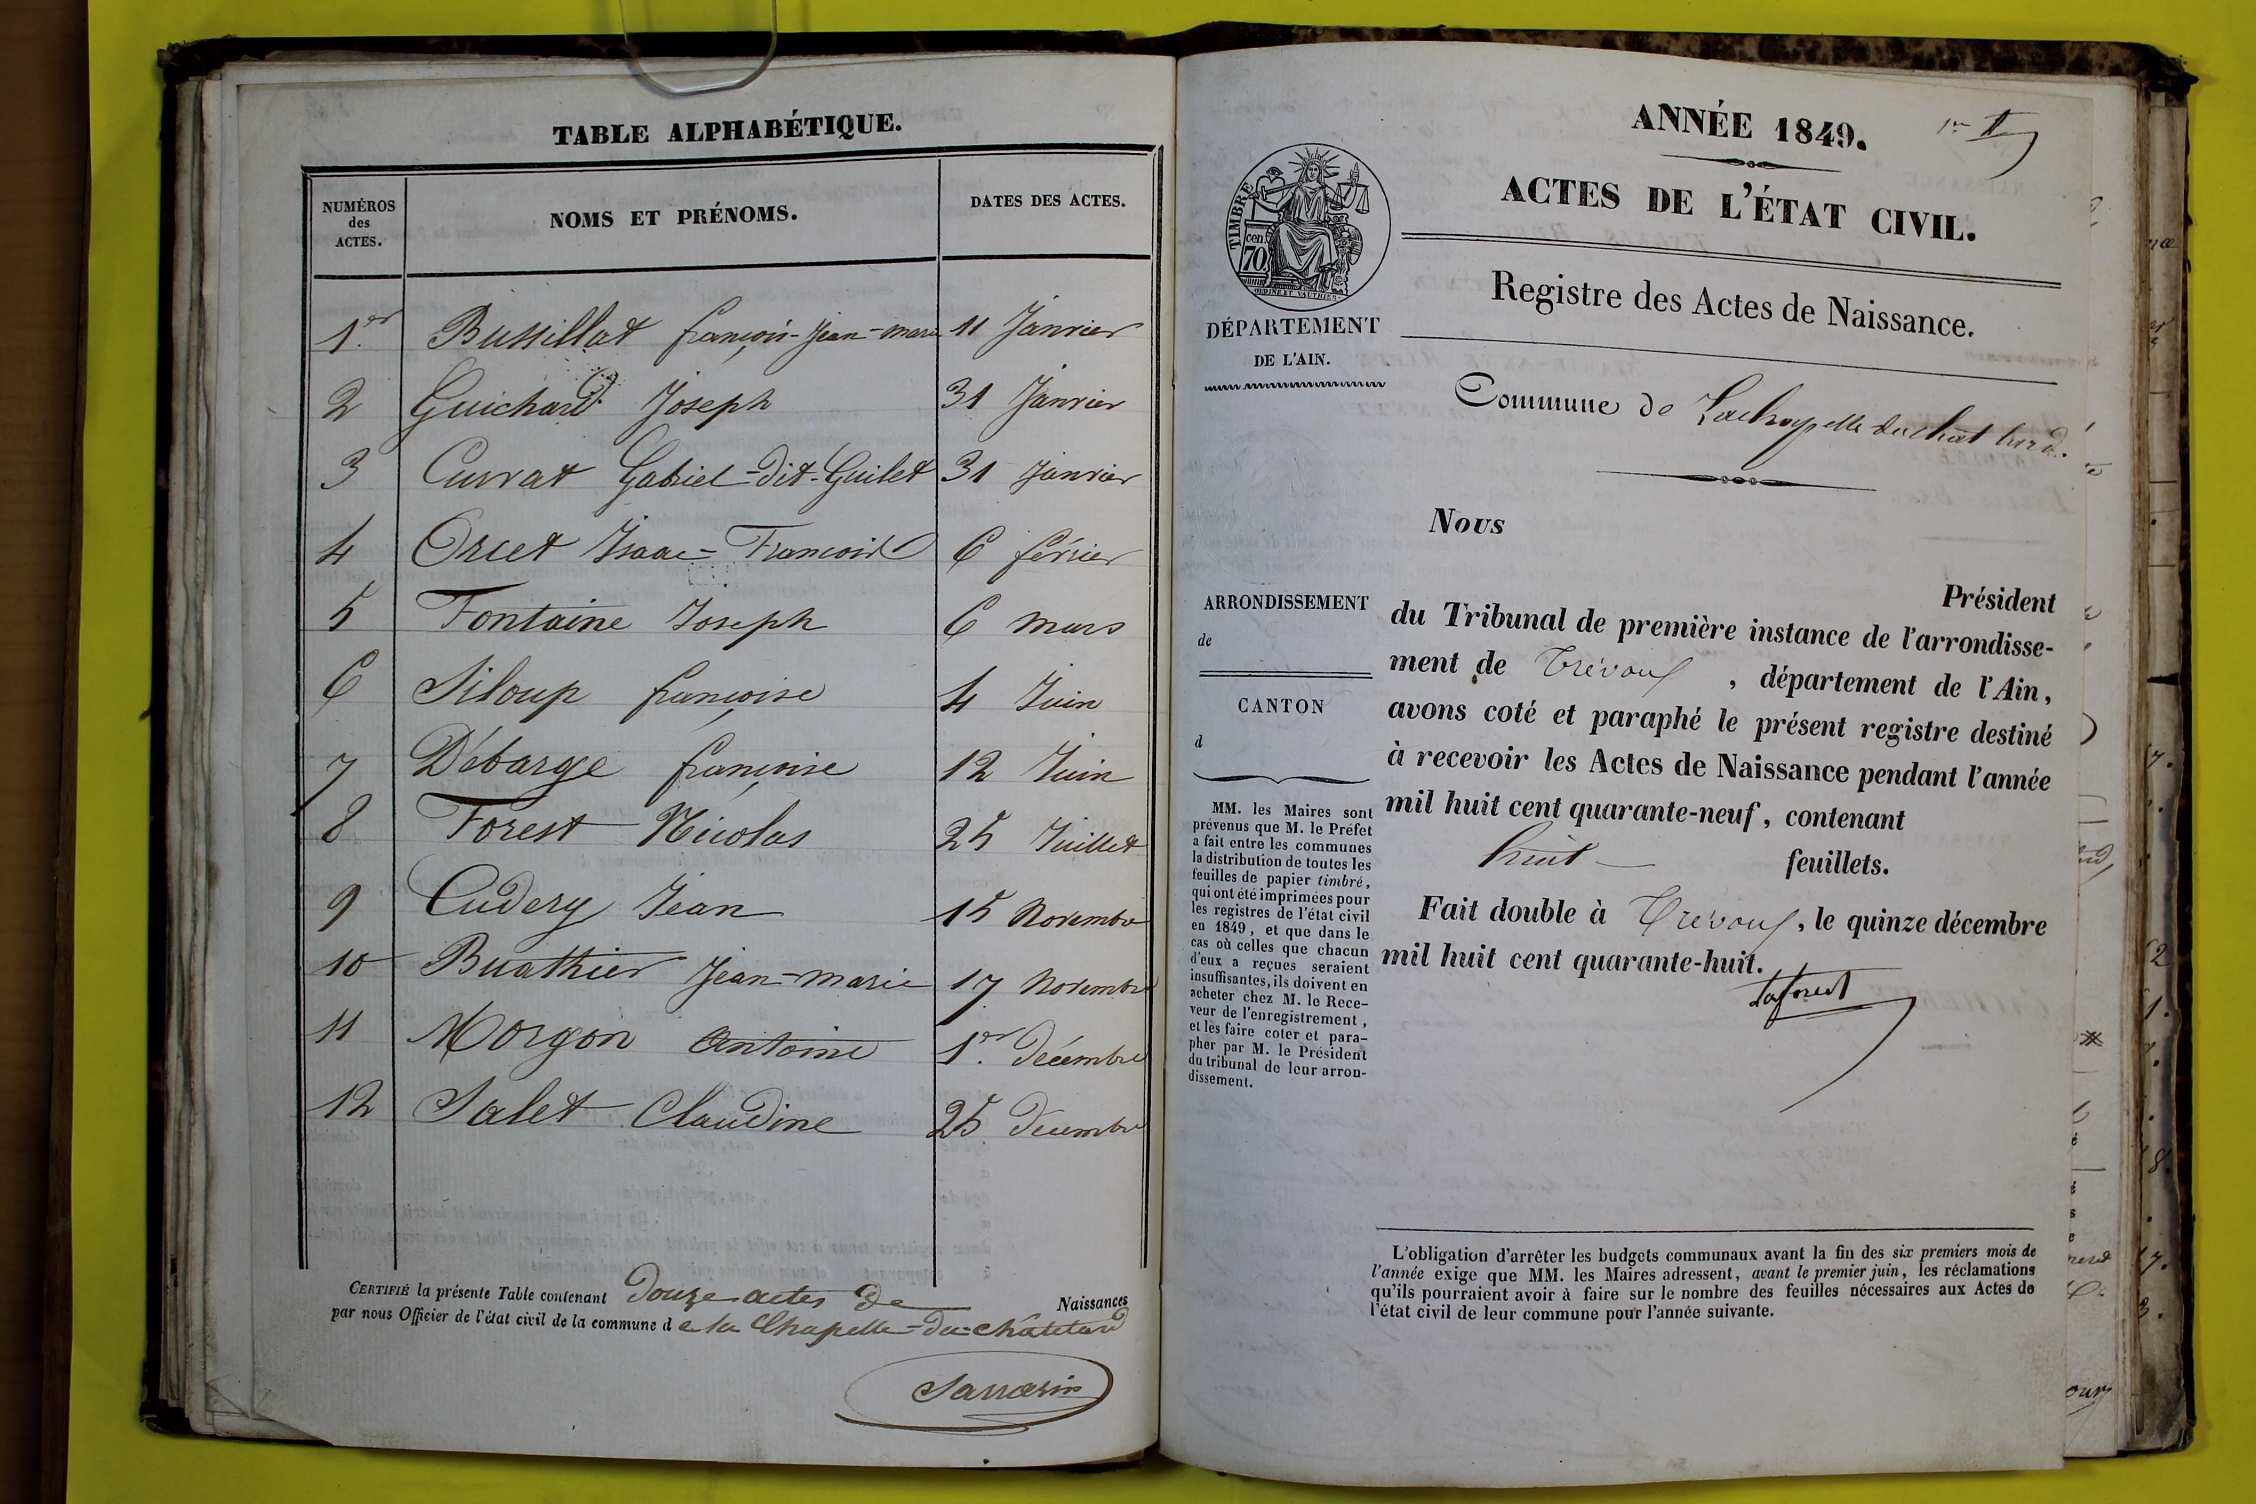 TABLE ALPHABÉTIQUE.
NUMÉROS
des
ACTES.
NOMS ET PRÉNOMS.
DATES DES ACTES.
1er Bussillat françois-Jean-marie 11 Janvier
2 Guichard Joseph 31 Janvier
3 Currat Gabriel-dit-Guilet 31 Janvier
4 Orcet Isaac-François 6 février
5 Fontaine Joseph 6 mars
6 Siloup françoise 4 Juin
7 Débarge françoise 12 Juin
8 Forest Nicolas 25 Juillet
9 Cudery Jean 15 Novembre
10 Buathier Jean-marie 17 Novembre
11 Morgon Antoine 1er Décembre
12 Salet Claudine 25 Décembre
CERTIFIÉ la présente Table contenant Douze actes de Naissances
par nous Officier de l'état civil de la commune de la Chapelle-du-châtelard
Sarrasin
ANNÉE 1849.
1er
ACTES DE L'ÉTAT CIVIL.
Registre des Actes de Naissance.
TIMBRE
70 cen
DÉPARTEMENT
DE L'AIN.
Commune de Lachapelle du Chatelard.
Nous
Président
du Tribunal de première instance de l'arrondisse-
ment de Trévoux, département de l'Ain,
avons coté et paraphé le présent registre destiné
à recevoir les Actes de Naissance pendant l'année
mil huit cent quarante-neuf, contenant
huit feuillets.
Fait double à Trévoux, le quinze décembre
mil huit cent quarante-huit.
Laforest
ARRONDISSEMENT
de
CANTON
d
MM. les Maires sont
prévenus que M. le Préfet
a fait entre les communes
la distribution de toutes les
feuilles de papier timbré,
qui ont été imprimées pour
les registres de l'état civil
en 1849, et que dans le
cas où celles que chacun
d'eux a reçues seraient
insuffisantes, ils doivent en
acheter chez M. le Rece-
veur de l'enregistrement,
et les faire coter et para-
pher par M. le Président
du tribunal de leur arron-
dissement.
L'obligation d'arrêter les budgets communaux avant la fin des six premiers mois de
l'année exige que MM. les Maires adressent, avant le premier juin, les réclamations
qu'ils pourraient avoir à faire sur le nombre des feuilles nécessaires aux Actes de
l'état civil de leur commune pour l'année suivante.